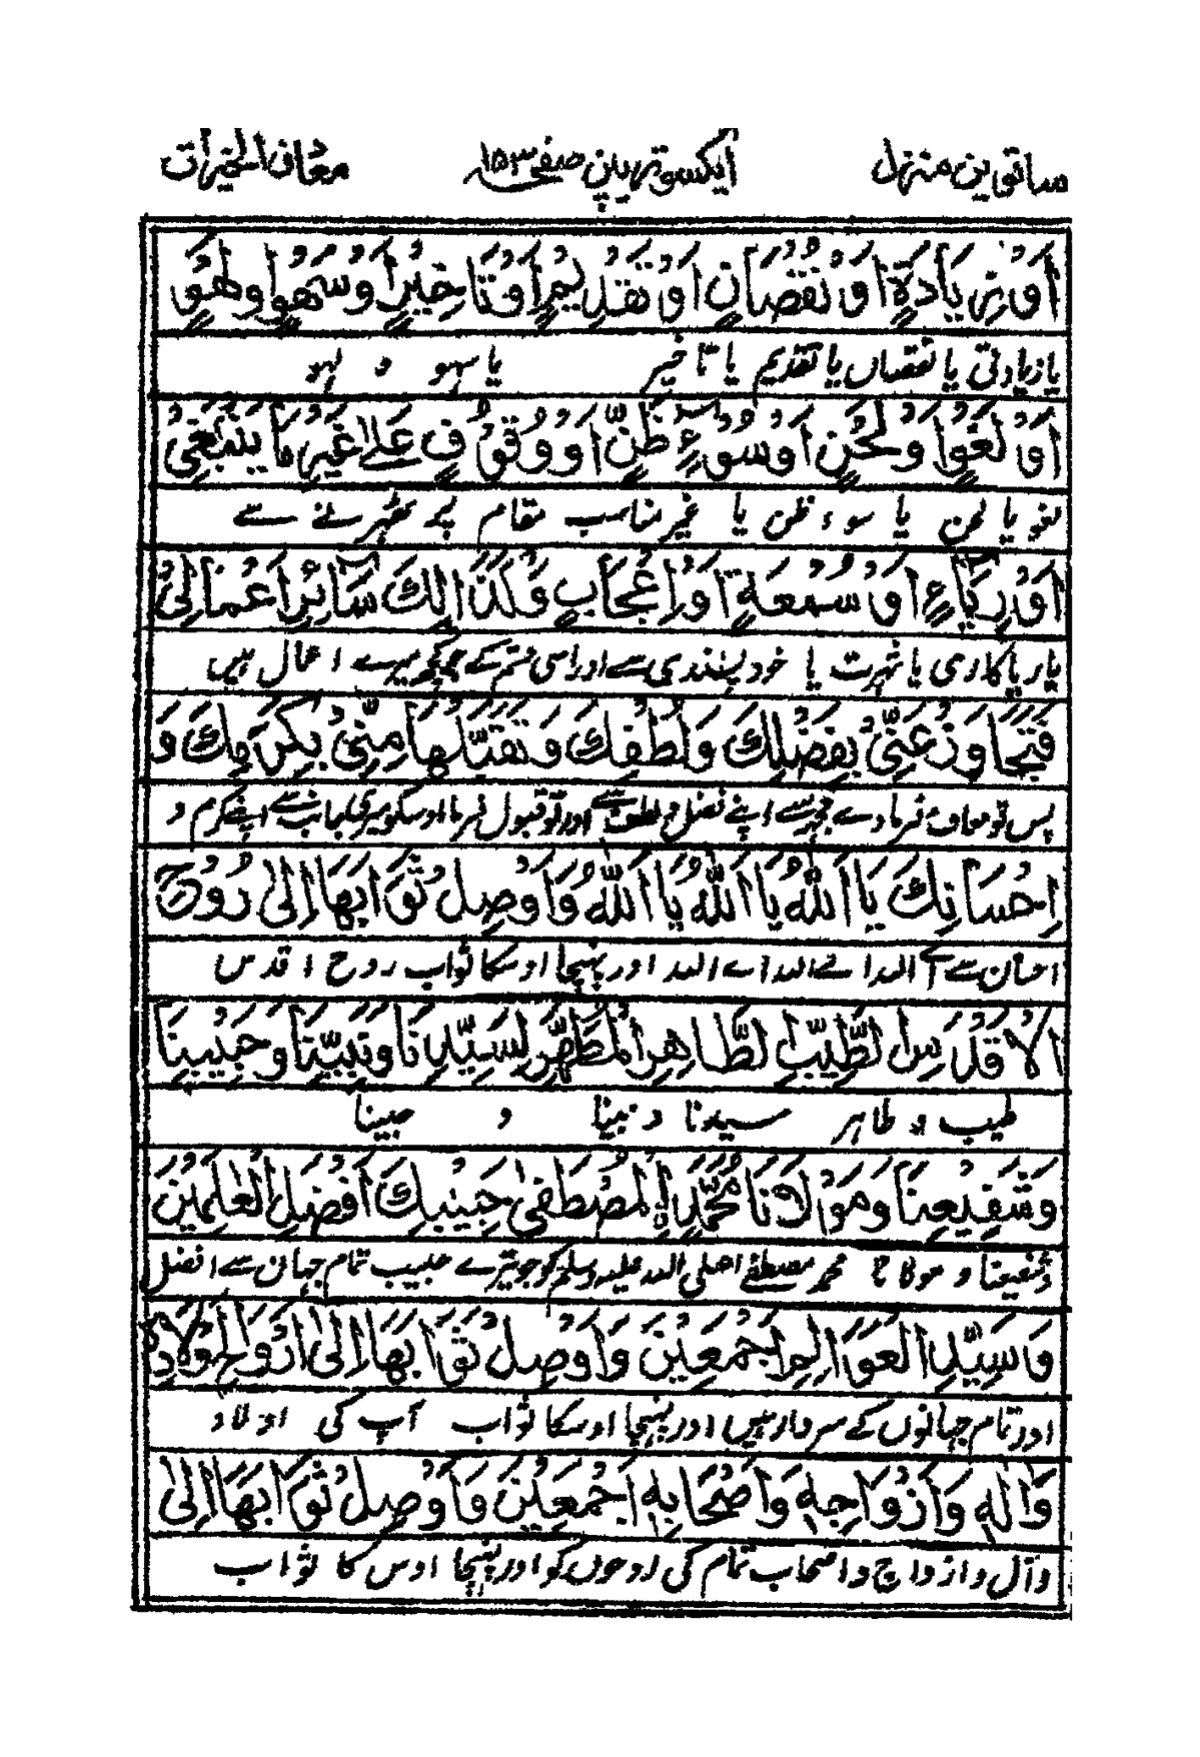 ساتویں منزل ایکسو ترپن صفحہ ۱۵۳ معارف الخیرات
اَوْ زِيَادَةٍ اَوْ نُقْصَانٍ اَوْ تَقْدِيْمٍ اَوْ تَاْخِيْرٍ اَوْ سَهْوٍ اَوْ لَهْوٍ
یا زیادتی یا نقصان یا تقدیم یا تاخیر یا سہو و لہو
اَوْ لَغْوٍ اَوْ لَحْنٍ اَوْ سُوْءِ ظَنٍّ اَوْ وُقُوْفٍ عَلٰی غَيْرِ مَا يَنْبَغِيْ
لغو یا لحن یا سوء ظن یا غیر مناسب مقام پر ٹھہرنے سے
اَوْ رِيَآءٍ اَوْ سُمْعَةٍ اَوْ اِعْجَابٍ وَكَذَالِكَ سَآئِرُ اَعْمَالِيْ
یا ریاکاری یا شہرت یا خود پسندی سے اور اسی قسم کے جو کچھ میرے اعمال ہیں
فَتَجَاوَزْ عَنِّيْ بِفَضْلِكَ وَلُطْفِكَ وَتَقَبَّلْهَا مِنِّيْ بِكَرَمِكَ وَ
پس تو معاف فرما دے مجھسے اپنے فضل و لطف سے اور تو قبول فرما اوسکو میری جانب سے اپنے کرم و
اِحْسَانِكَ يَا اَللّٰهُ يَا اَللّٰهُ يَا اَللّٰهُ وَاَوْصِلْ ثَوَابَهَا اِلٰی رُوْحِ
احسان سے اے اللہ اے اللہ اے اللہ اور پہنچا اوسکا ثواب روح اقدس
الْاَقْدَسِ الطَّيِّبِ الطَّاهِرِ الْمُطَهَّرِ لِسَيِّدِنَا وَنَبِيِّنَا وَحَبِيْبِنَا
طیب و طاہر سیدنا و نبینا و حبینا
وَشَفِيْعِنَا وَمَوْلَانَا مُحَمَّدِ نِ الْمُصْطَفٰی حَبِيْبِكَ اَفْضَلِ الْعٰلَمِيْنَ
وشفیعنا و مولانا محمد مصطفےٰ صلی اللہ علیہ وسلم کو جو تیرے حبیب تمام جہان سے افضل
وَسَيِّدِ الْعَوَالِمِ اَجْمَعِيْنَ وَاَوْصِلْ ثَوَابَهَا اِلٰی اَرْوَاحِ اَوْلَادِهٖ
اور تمام جہانوں کے سردار ہیں اور پہنچا اوسکا ثواب آپ کی اولاد
وَاٰلِهٖ وَاَزْوَاجِهٖ وَاَصْحَابِهٖ اَجْمَعِيْنَ وَاَوْصِلْ ثَوَابَهَا اِلٰی
وآل و ازواج و اصحاب تمام کی روحوں کو اور پہنچا اوس کا ثواب